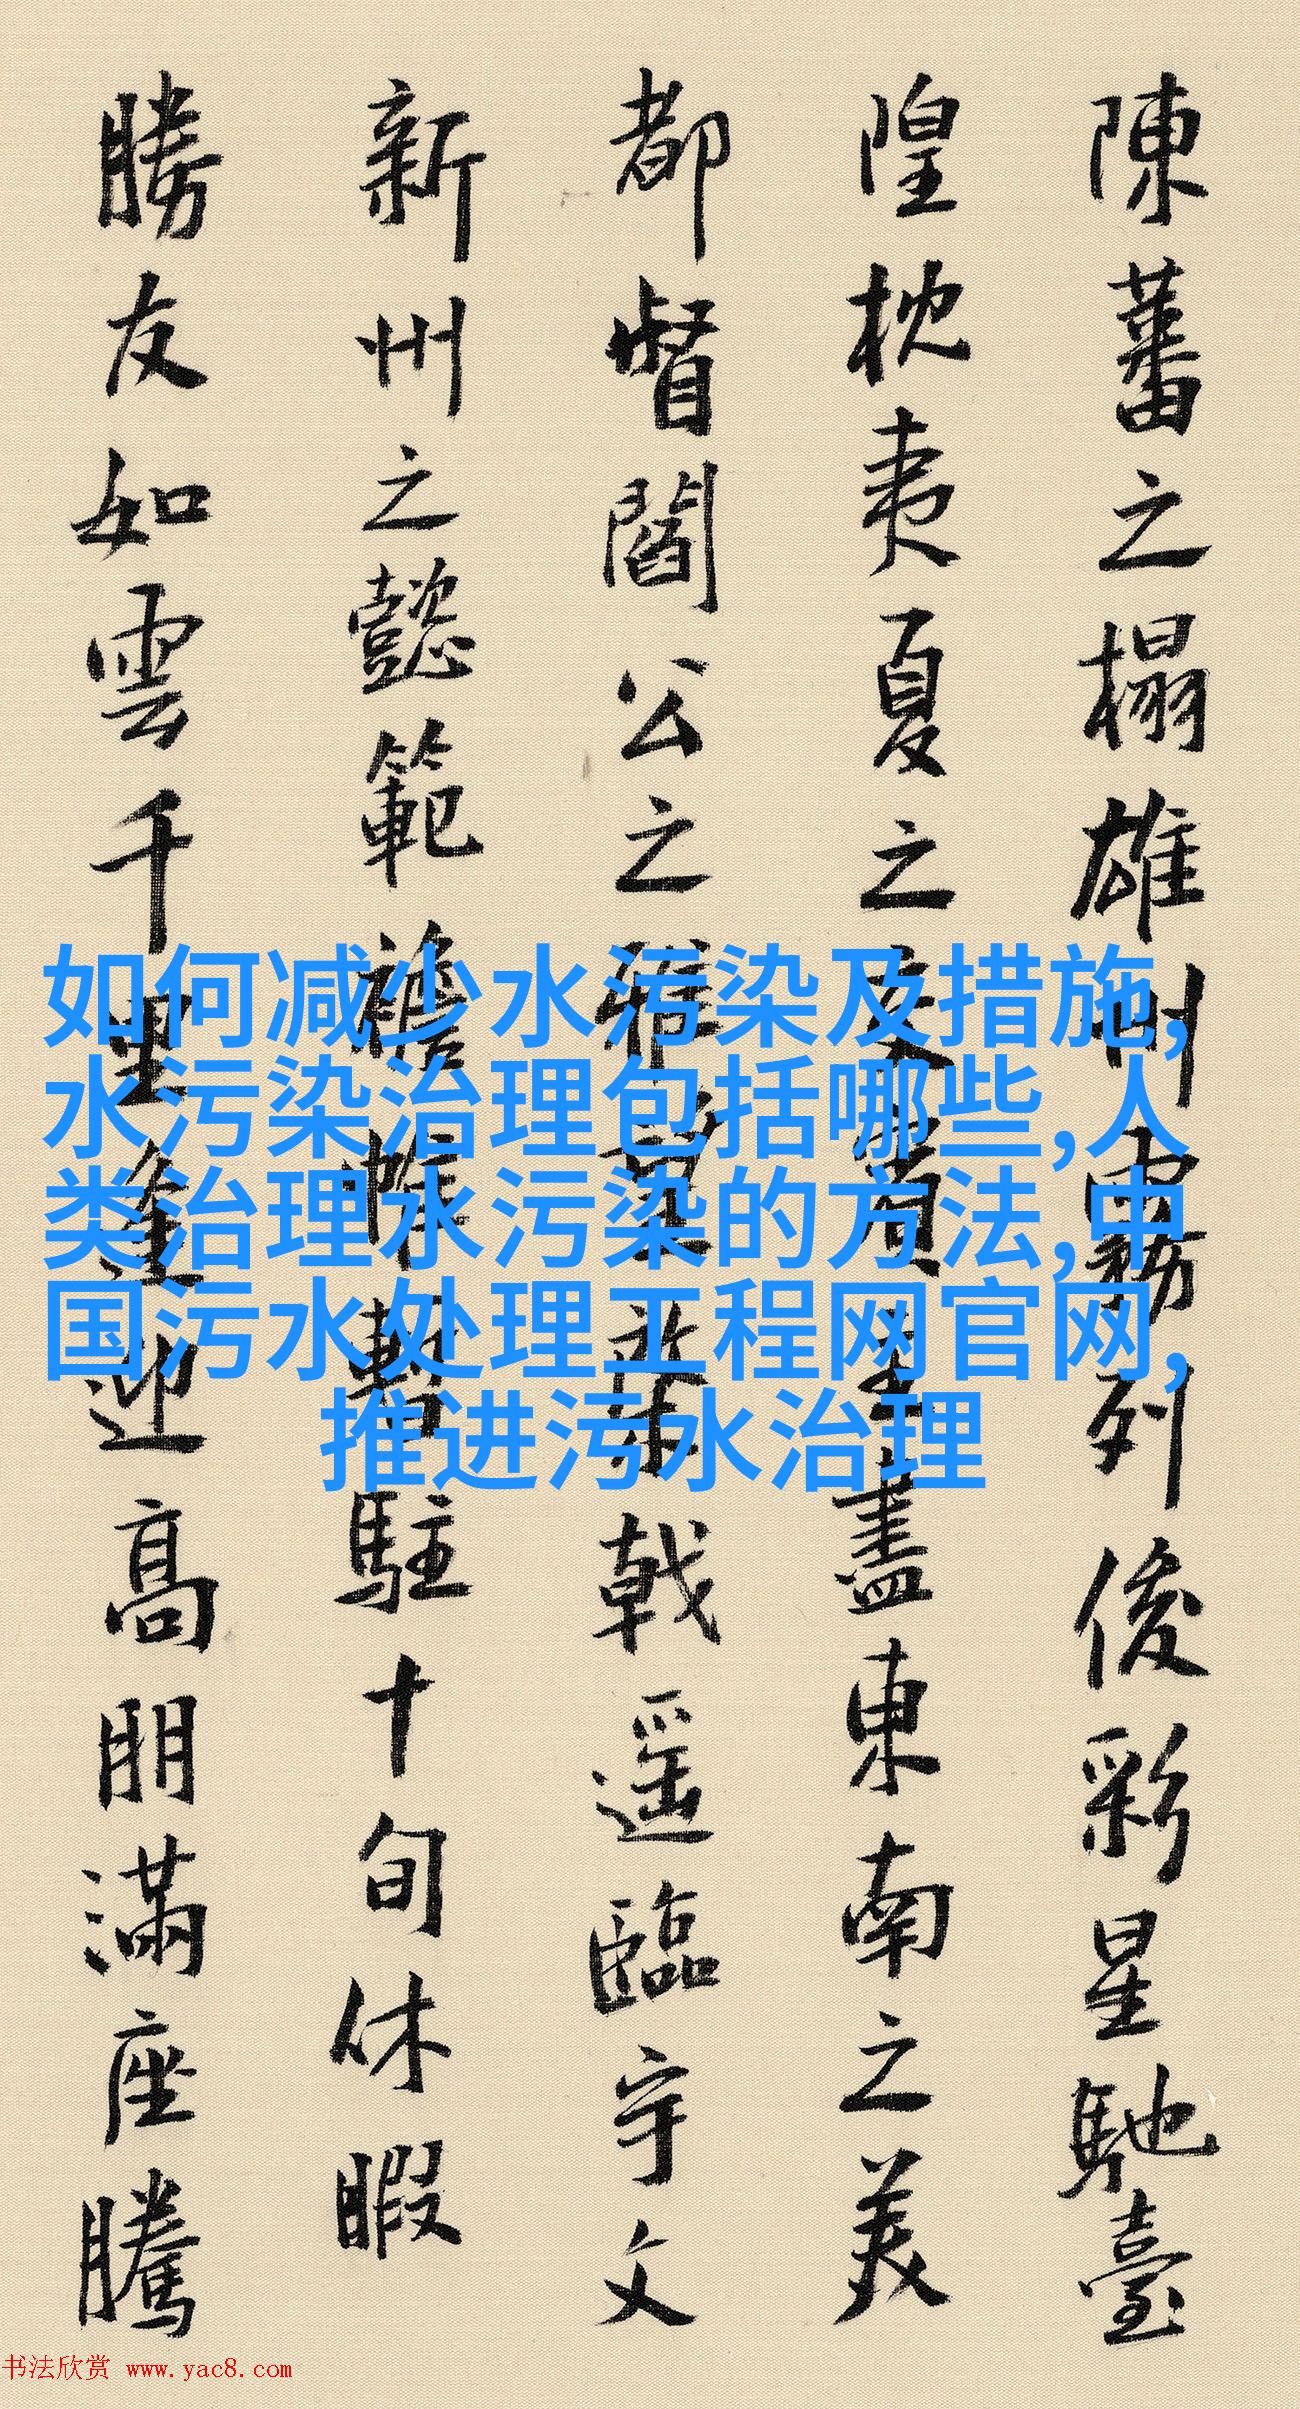 陳蕃之榻雄州霧列俊彩星馳臺
隍枕夷夏之交賓主盡東南之美
都督閻公之雅望棨戟遥臨宇文
新州之懿範襜帷暫駐十旬休暇
勝友如雲千里逢迎高朋滿座騰
如何减少水污染及措施,
水污染治理包括哪些,人
类治理水污染的方法,中
国污水处理工程网官网,
推进污水治理
书法欣赏 www.yac8.com